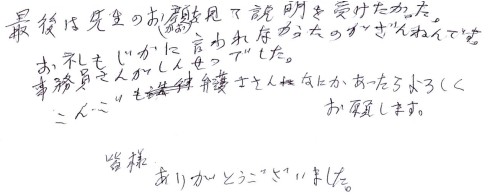 最後は先生のお顔見て説明を受けたかった。
お礼もじかに言われなかったのがざんねんです。
事務員さんがしんせつでした。
こんごも弁護士さんになにかあったらよろしく
お願します。
皆様
ありがとうございました。